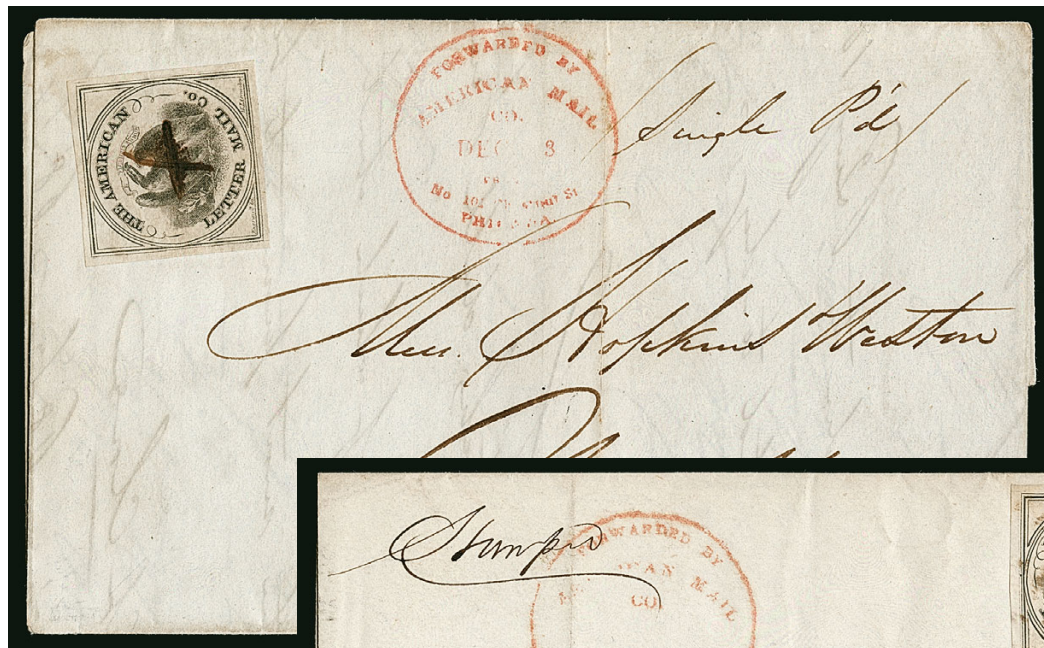 THE AMERICAN
LETTER MAIL CO.
FORWARDED BY
AMERICAN MAIL
CO.
DEC 3
No 101 St
PHILADA
Single P'd
Hopkins Weston
Stamped
FORWARDED BY
AMERICAN MAIL
CO.